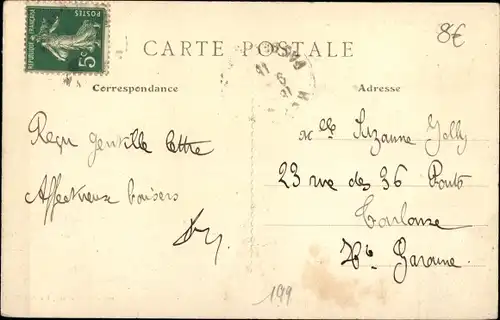 8€
POSTES
REPUBLIQUE FRANÇAISE
5c
CARTE POSTALE
Correspondance
Adresse
Reçu gentille lettre
Affectueux baisers
Mlle Suzanne Jolly
23 rue des 36 Ponts
Toulouse
Hte Garonne
199